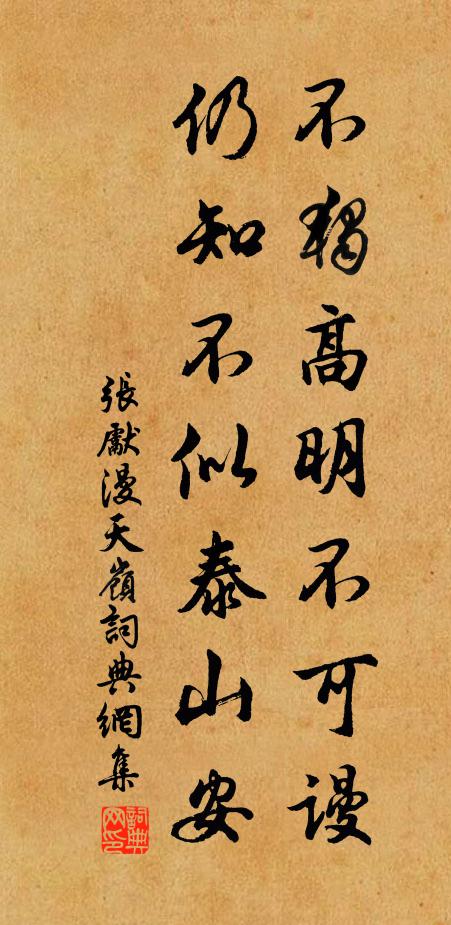 不獨高明不可謾
仍知不似泰山安
張獻漫天嶺詞典網集
詞典網印